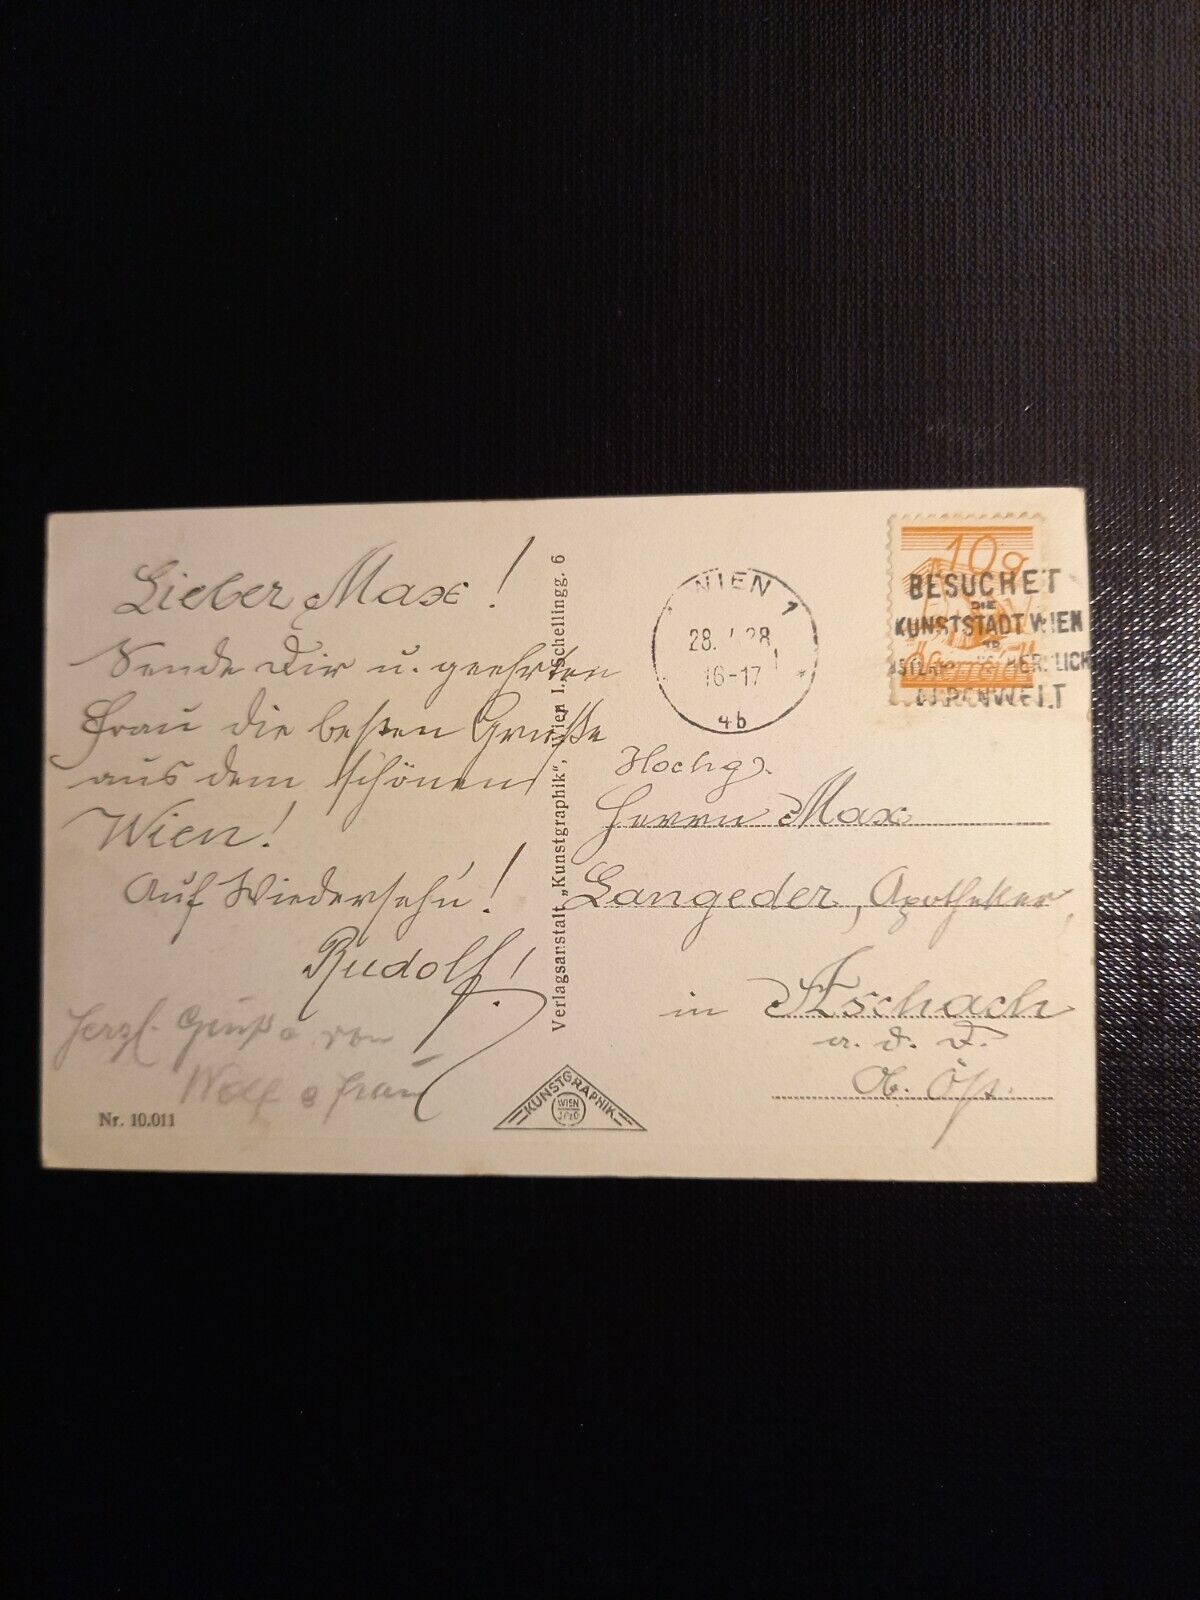 Lieber Max!
Sende Dir u. geehrten
Frau die besten Grüße
aus dem schönen
Wien!
Auf Wiedersehn!
Rudolf!
Herzl. Grüße von
Wolf & Frau
Nr. 10.011
Verlagsanstalt „Kunstgraphik“, Wien I. Schellingg. 6
KUNSTGRAPHIK
WIEN
WIEN 1
28. 28
16-17
4b
10g
BESUCHET
DIE
KUNSTSTADT WIEN
HERRLICH
ALPENWELT
Hochg.
Herrn Max
Langeder, Apotheker,
in Aschach
a. d. D.
Ob. Öst.